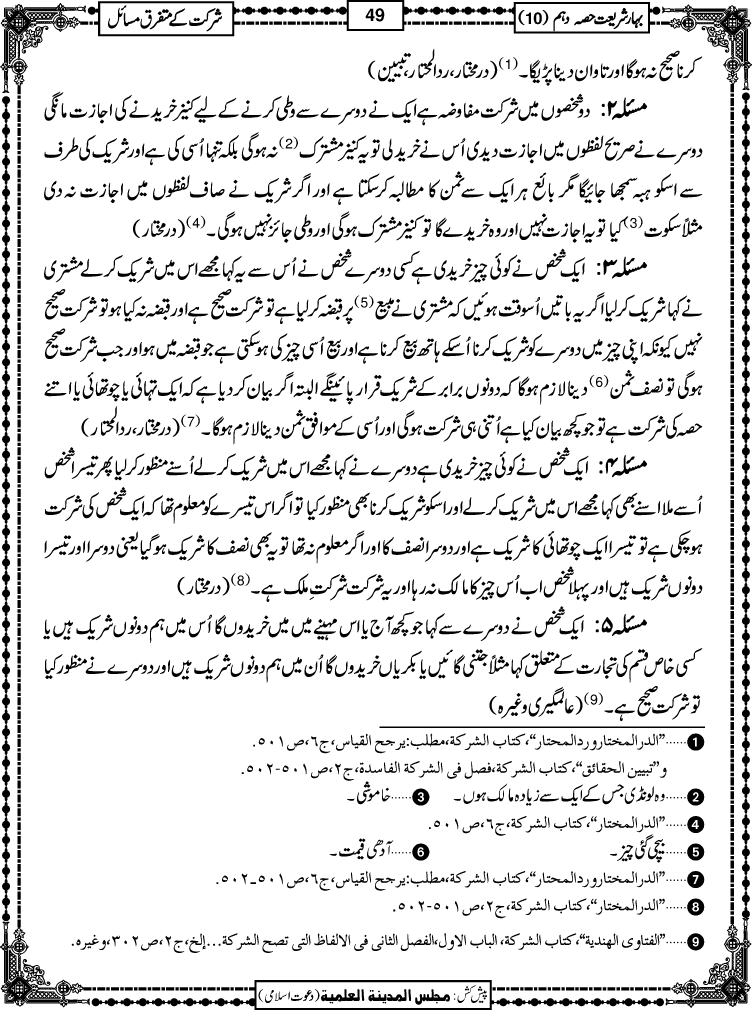 بہارِ شریعت حصہ دہم (10)
49
شرکت کے متفرق مسائل
کرنا صحیح نہ ہوگا اور تاوان دینا پڑیگا۔ (1) (درمختار، ردالمحتار، تبیین)
مسئلہ ۲: دو شخصوں میں شرکت مفاوضہ ہے ایک نے دوسرے سے وطی کرنے کے لیے کنیز خریدنے کی اجازت مانگی
دوسرے نے صریح لفظوں میں اجازت دیدی اُس نے خرید لی تو یہ کنیز مشترک (2) نہ ہوگی بلکہ تنہا اُسی کی ہے اور شریک کی طرف
سے اسکو ہبہ سمجھا جائیگا مگر بائع ہر ایک سے ثمن کا مطالبہ کرسکتا ہے اور اگر شریک نے صاف لفظوں میں اجازت نہ دی
مثلاً سکوت (3) کیا تو یہ اجازت نہیں اور وہ خریدے گا تو کنیز مشترک ہوگی اور وطی جائز نہیں ہوگی۔ (4) (درمختار)
مسئلہ ۳: ایک شخص نے کوئی چیز خریدی ہے کسی دوسرے شخص نے اُس سے یہ کہا مجھے اس میں شریک کرلے مشتری
نے کہا شریک کرلیا اگر یہ باتیں اُسوقت ہوئیں کہ مشتری نے مبیع (5) پر قبضہ کرلیا ہے تو شرکت صحیح ہے اور قبضہ نہ کیا ہو تو شرکت صحیح
نہیں کیونکہ اپنی چیز میں دوسرے کو شریک کرنا اُسکے ہاتھ بیع کرنا ہے اور بیع اُسی چیز کی ہوسکتی ہے جو قبضہ میں ہو اور جب شرکت صحیح
ہوگی تو نصف ثمن (6) دینا لازم ہوگا کہ دونوں برابر کے شریک قرار پائینگے البتہ اگر بیان کردیا ہے کہ ایک تہائی یا چوتھائی یا اتنے
حصہ کی شرکت ہے تو جو کچھ بیان کیا ہے اُتنی ہی شرکت ہوگی اور اُسی کے موافق ثمن دینا لازم ہوگا۔ (7) (درمختار، ردالمحتار)
مسئلہ ۴: ایک شخص نے کوئی چیز خریدی ہے دوسرے نے کہا مجھے اس میں شریک کرلے اُسنے منظور کرلیا پھر تیسرا شخص
اُسے ملا اسنے بھی کہا مجھے اس میں شریک کرلے اور اسکو شریک کرنا بھی منظور کیا تو اگر اس تیسرے کو معلوم تھا کہ ایک شخص کی شرکت
ہوچکی ہے تو تیسرا ایک چوتھائی کا شریک ہے اور دوسرا نصف کا اور اگر معلوم نہ تھا تو یہ بھی نصف کا شریک ہوگیا یعنی دوسرا اور تیسرا
دونوں شریک ہیں اور پہلا شخص اب اُس چیز کا مالک نہ رہا اور یہ شرکت شرکتِ مِلک ہے۔ (8) (درمختار)
مسئلہ ۵: ایک شخص نے دوسرے سے کہا جو کچھ آج یا اس مہینے میں میں خریدوں گا اُس میں ہم دونوں شریک ہیں یا
کسی خاص قسم کی تجارت کے متعلق کہا مثلاً جتنی گائیں یا بکریاں خریدوں گا اُن میں ہم دونوں شریک ہیں اور دوسرے نے منظور کیا
تو شرکت صحیح ہے۔ (9) (عالمگیری وغیرہ)
1 ......”الدرالمختار و ردالمحتار“، کتاب الشرکة، مطلب: یرجح القیاس، ج٦، ص٥٠١.
و”تبیین الحقائق“، کتاب الشرکة، فصل فی الشرکة الفاسدة، ج٢، ص٥٠١-٥٠٢.
2 ......وہ لونڈی جس کے ایک سے زیادہ مالک ہوں۔ 3 ......خاموشی۔
4 ......”الدرالمختار“، کتاب الشرکة، ج٦، ص٥٠١.
5 ......بیچی گئی چیز۔ 6 ......آدھی قیمت۔
7 ......”الدرالمختار و ردالمحتار“، کتاب الشرکة، مطلب: یرجح القیاس، ج٦، ص٥٠١-٥٠٢.
8 ......”الدرالمختار“، کتاب الشرکة، ج٢، ص٥٠١-٥٠٢.
9 ......”الفتاوی الهندیة“، کتاب الشرکة، الباب الاول، الفصل الثانی فی الالفاظ التی تصح الشرکة...إلخ، ج٢، ص٣٠٢، وغیرہ.
پیش کش: مجلس المدینة العلمیة (دعوتِ اسلامی)